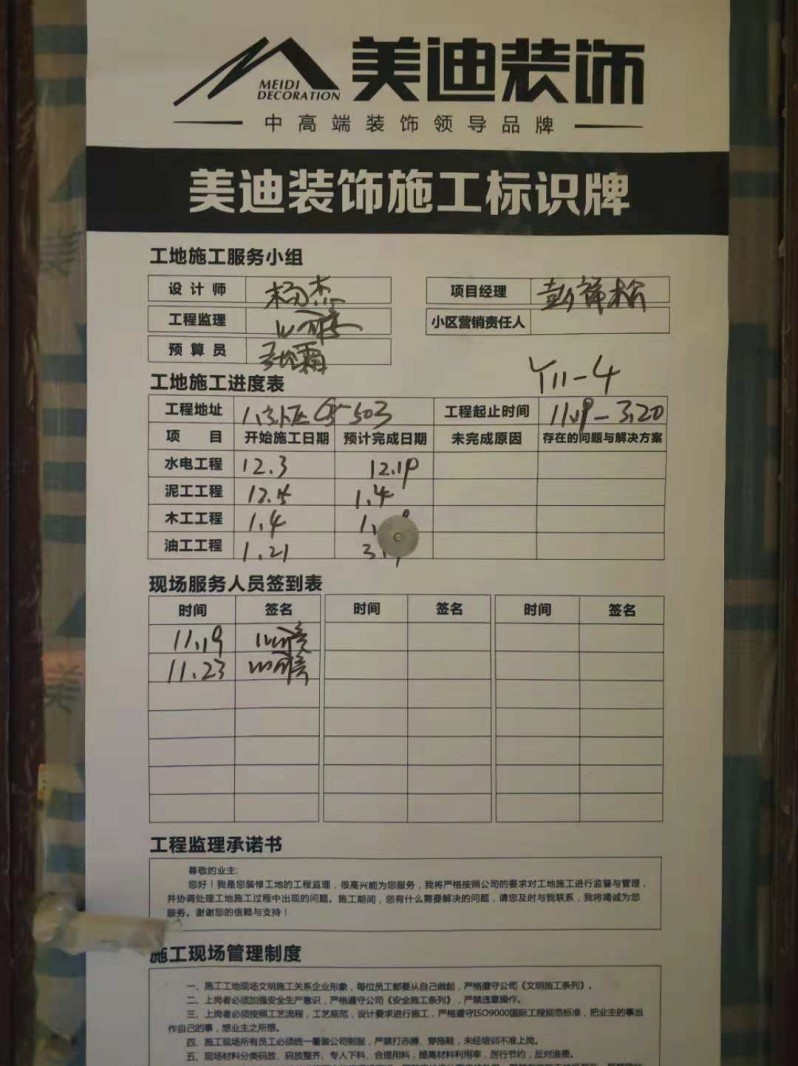 MEIDI
DECORATION
美迪装饰
中高端装饰领导品牌
美迪装饰施工标识牌
工地施工服务小组
设计师 杨杰 项目经理
工程监理 小区营销责任人
预算员
Y11-4
工地施工进度表
工程地址 503 工程起止时间 11.19-3.20
项目 开始施工日期 预计完成日期 未完成原因 存在的问题与解决方案
水电工程 12.3 12.19
泥工工程 1.4
木工工程 1.4
油工工程 1.21
现场服务人员签到表
时间 签名 时间 签名 时间 签名
11.19
11.23
工程监理承诺书
尊敬的业主:
您好！我是您装修工地的工程监理，很高兴能为您服务，我将严格按照公司的要求对工地施工进行监督与管理，
并协调处理工地施工过程中出现的问题。施工期间，您有什么需要解决的问题，请您及时与我联系，我将竭诚为您
服务。谢谢您的信赖与支持！
施工现场管理制度
一、施工工地现场文明施工关系企业形象，每位员工都要从自己做起，严格遵守公司《文明施工条列》。
二、上岗者必须加强安全生产意识，严格遵守公司《安全施工条列》，严禁违章操作。
三、上岗者必须按照工艺流程，工艺规范，设计要求进行施工，严格遵守ISO9000国际工程规范标准，把业主的事当
作自己的事，想业主之所想。
四、施工现场所有员工必须统一着装公司制服，严禁打赤膊、穿拖鞋，未经培训不准上岗。
五、现场材料分类码放、码放整齐、专人下料、合理用料，提高材料利用率，厉行节约，反对浪费。